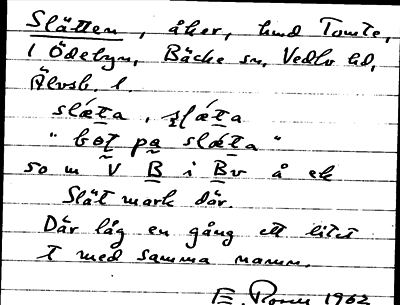 Slätten, åker, hmd Tomte,
i Ödebyn, Bäcke sn, Vedbo hd,
Älvsb. l.
slæ̀ta, slæ̀ta
"bo̩t pa slæ̀ta"
so m V B i Bv å ek
Slät mark där.
Där låg en gång ett litet
t med samma namn.
1962